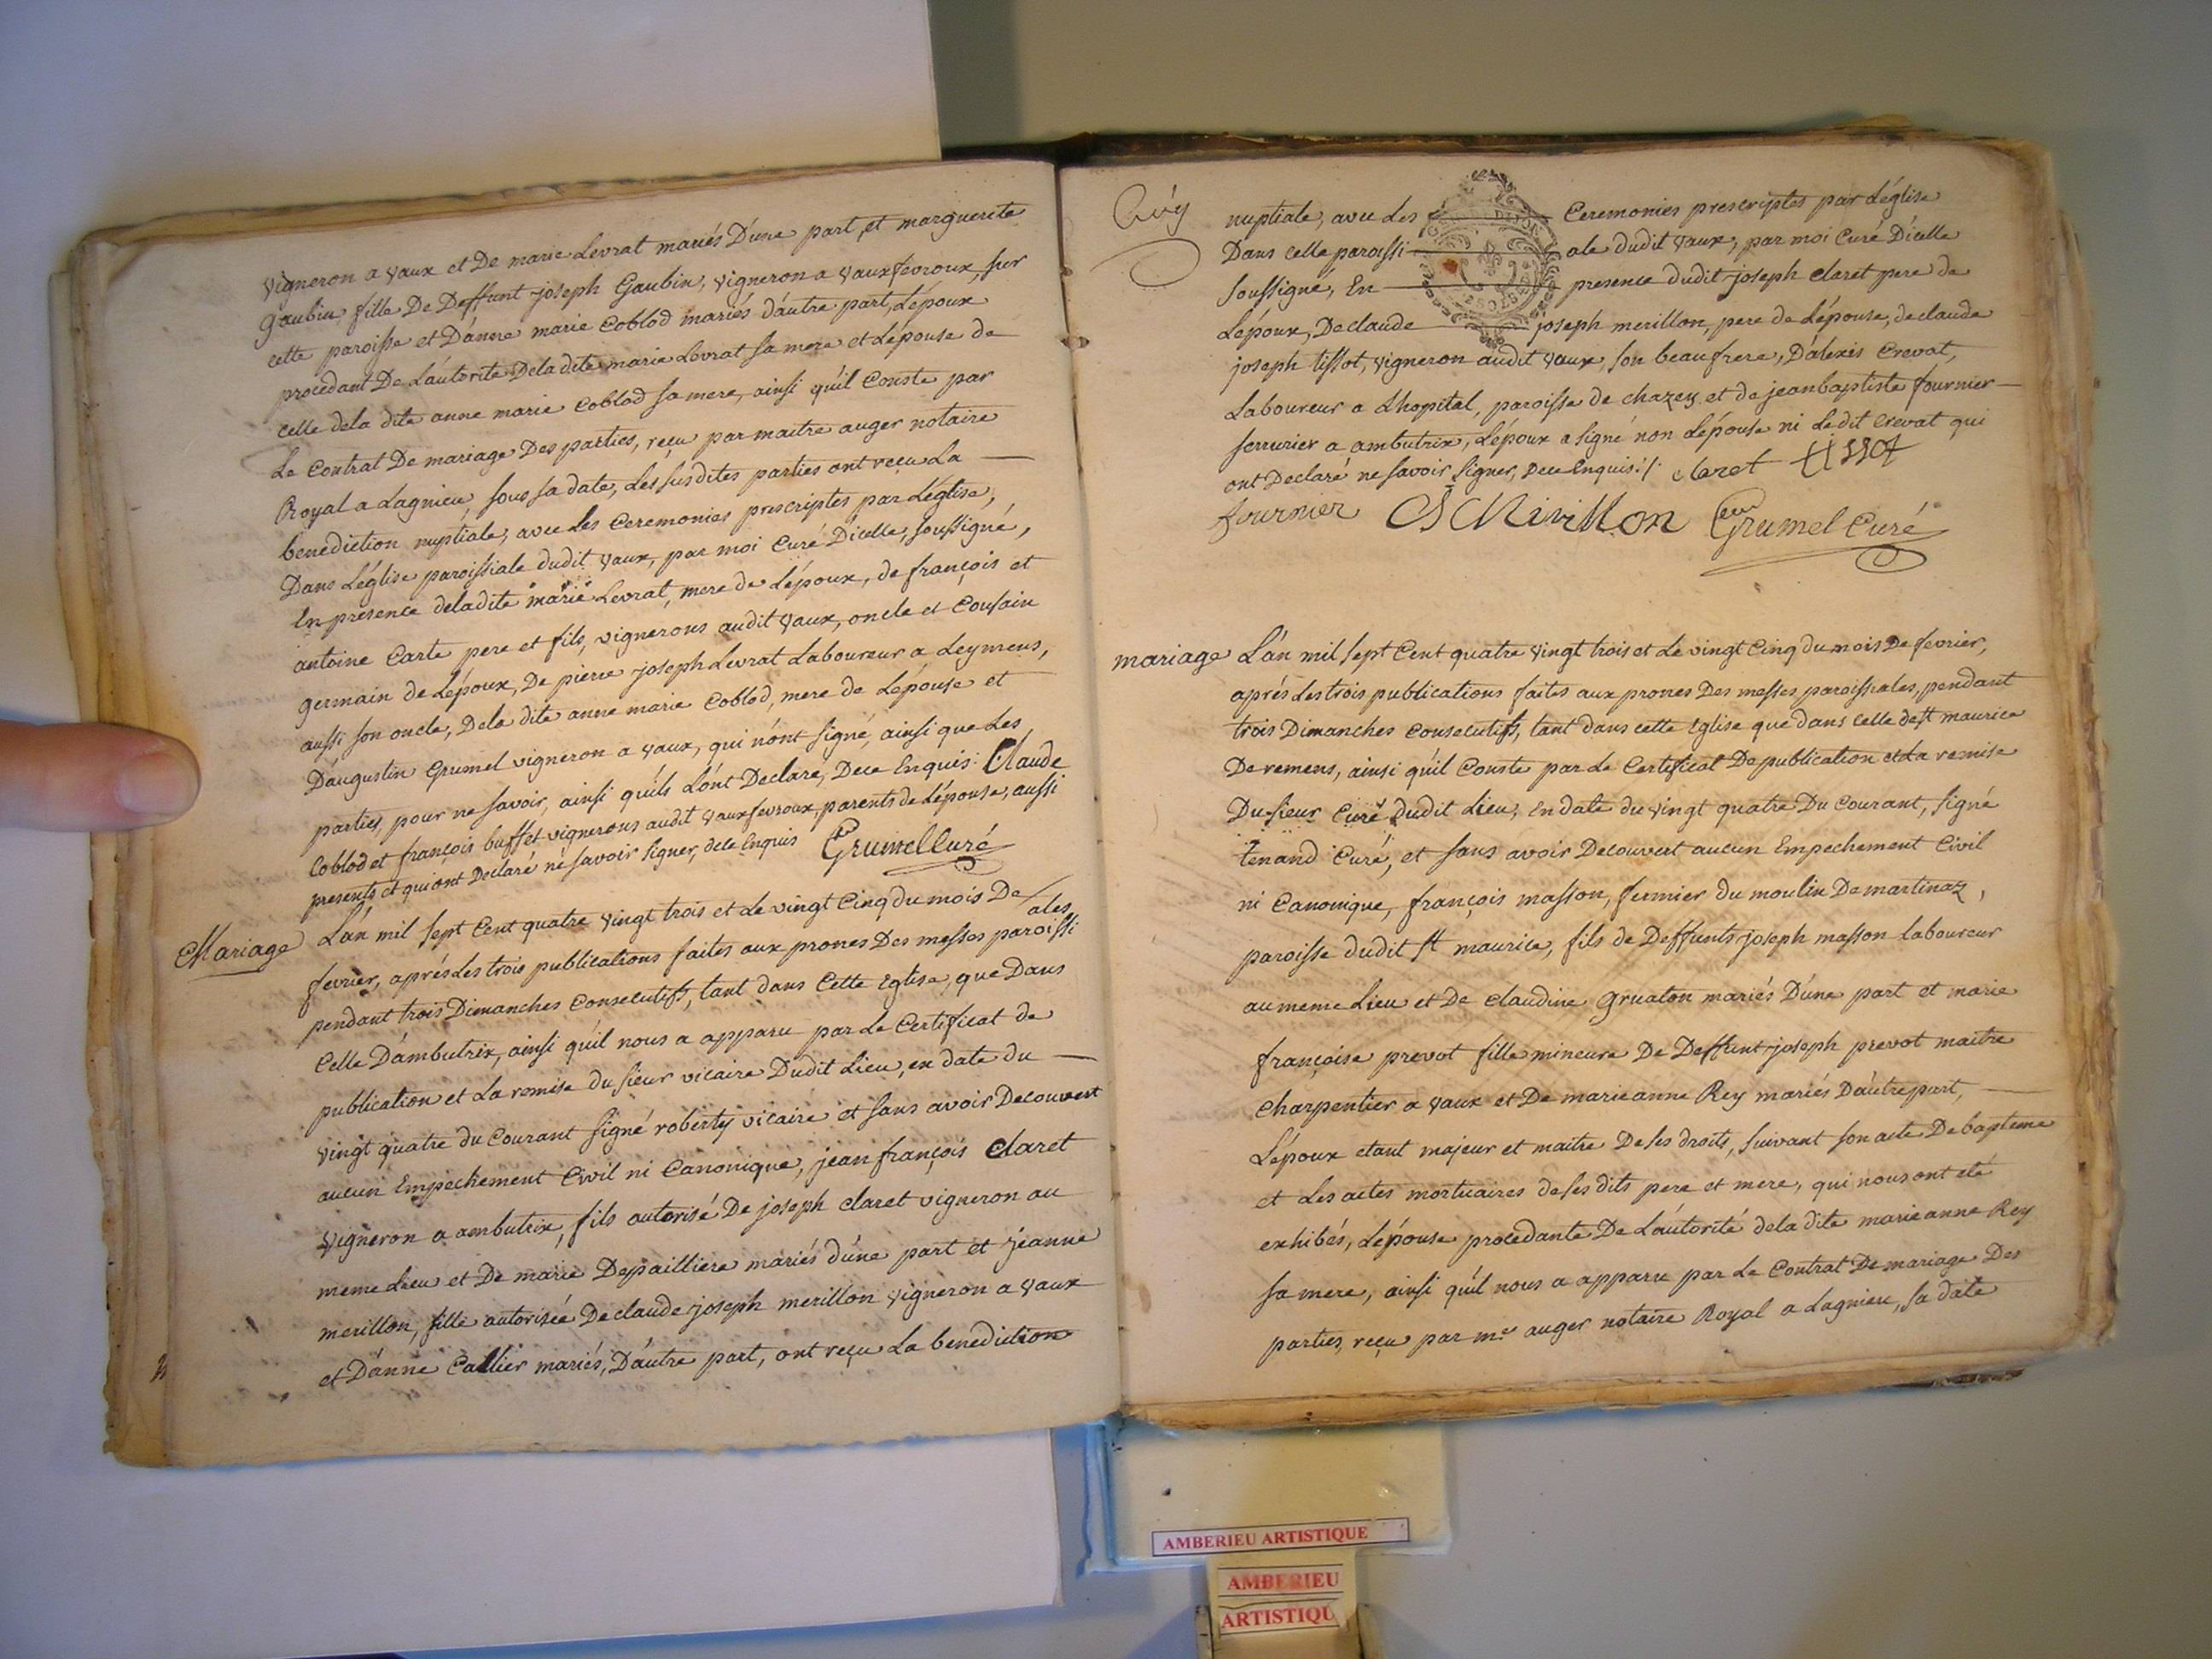 vigneron a vaux et De marie Levrat mariés D'une part, et marguerite
gaubin, fille De Deffunt joseph Gaubin, vigneron a vauxfevroux, sur
cette paroisse et D'anne marie Coblod mariés d'autre part, L'époux
procedant De L'autorité De la dite marie Levrat sa mere et L'épouse de
celle de la dite anne marie Coblod sa mere, ainsi qu'il Conste par
Le Contrat De mariage Des parties, reçu par maitre auger notaire
Royal a Lagnieu, sous sa date, Les susdites parties ont reçu La —
benediction nuptiale, avec Les Ceremonies prescriptes par L'église,
Dans L'église paroissiale dudit vaux, par moi Curé D'icelle, soussigné,
En presence de la dite marie Levrat, mere de L'époux, de françois et
antoine Carte pere et fils, vignerons audit vaux, oncle et Cousain
germain de L'époux, De pierre joseph Levrat Laboureur a Leymens,
aussi son oncle, De la dite anne marie Coblod, mere de L'épouse et
D'augustin Grumel vigneron a vaux, qui n'ont signé, ainsi que Les
parties, pour ne savoir, ainsi qu'ils L'ont Declare, De ce Enquis: Claude
Coblod et françois buffet vignerons audit vauxfevroux, parents de L'épouse, aussi
presents et qui ont Declaré ne savoir signer, de ce Enquis Grumel Curé
Mariage L'an mil sept Cent quatre vingt trois et Le vingt Cinq du mois De
fevrier, aprés Les trois publications faites aux prones Des messes paroissi/ales
pendant trois Dimanches Consecutifs, tant dans Cette Eglise, que Dans
Celle D'ambutrix, ainsi qu'il nous a apparu par Le Certificat de
publication et La remise du sieur vicaire Dudit Lieu, en date du —
vingt quatre du Courant signé roberty vicaire et sans avoir Decouvert
aucun Empechement Civil ni Canonique, jean françois Claret
vigneron a ambutrix, fils autorisé De joseph Claret vigneron au
meme Lieu et De marie Depailliere mariés d'une part et jeanne
merillon, fille autorisée De claude joseph merillon vigneron a vaux
et D'anne Callier mariés, D'autre part, ont reçu La benediction
nuptiale, avec Les Ceremonies prescriptes par L'église
Dans celle paroissi ale dudit vaux, par moi Curé D'icelle
soussigné, En presence dudit joseph claret pere de
L'époux, De claude joseph merillon, pere de L'épouse, de claude
joseph tissot, vigneron audit vaux, son beau frere, D'alexis Crevat,
Laboureur a L'hopital, paroisse de chazey et de jean baptiste fournier —
serrurier a ambutrix, L'époux a signé non L'épouse ni Le dit Crevat qui
ont Declaré ne savoir signer, De ce Enquis ./. claret
fournier Grumel Curé
mariage L'an mil sept Cent quatre vingt trois et Le vingt Cinq du mois De fevrier,
aprés Les trois publications faites aux prones Des messes paroissiales, pendant
trois Dimanches Consecutifs, tant dans cette Eglise que dans celle de St maurice
De remens, ainsi qu'il Conste par Le Certificat De publication et La remise
Du sieur Curé dudit Lieu, en date du vingt quatre Du Courant, signé
tenand Curé, et sans avoir Decouvert aucun Empechement Civil
ni Canonique, françois masson, fermier du moulin De martinaz,
paroisse dudit St maurice, fils de Deffunts joseph masson laboureur
au meme Lieu et De claudine gruaton mariés D'une part et marie
françoise prevot fille mineure De Deffunt joseph prevot maitre
Charpentier a vaux et De marie anne Rey mariés D'autre part, —
L'époux etant majeur et maitre De ses droits, suivant son acte De bapteme
et Les actes mortuaires de ses dits pere et mere, qui nous ont eté
exhibés, L'épouse procedante De L'autorité de la dite marie anne Rey
sa mere, ainsi qu'il nous a apparu par Le Contrat De mariage Des
parties, reçu par me auger notaire Royal a Lagnieu, sa date
AMBERIEU ARTISTIQUE
AMBERIEU
ARTISTIQU